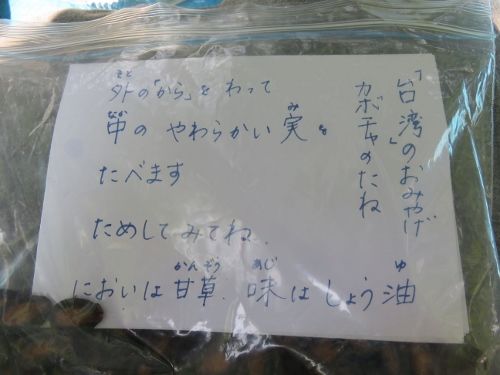 「台湾」のおみやげ
カボチャのたね
外の「から」をわって
中のやわらかい実を
たべます
ためしてみてね.
においは甘草.味はしょう油